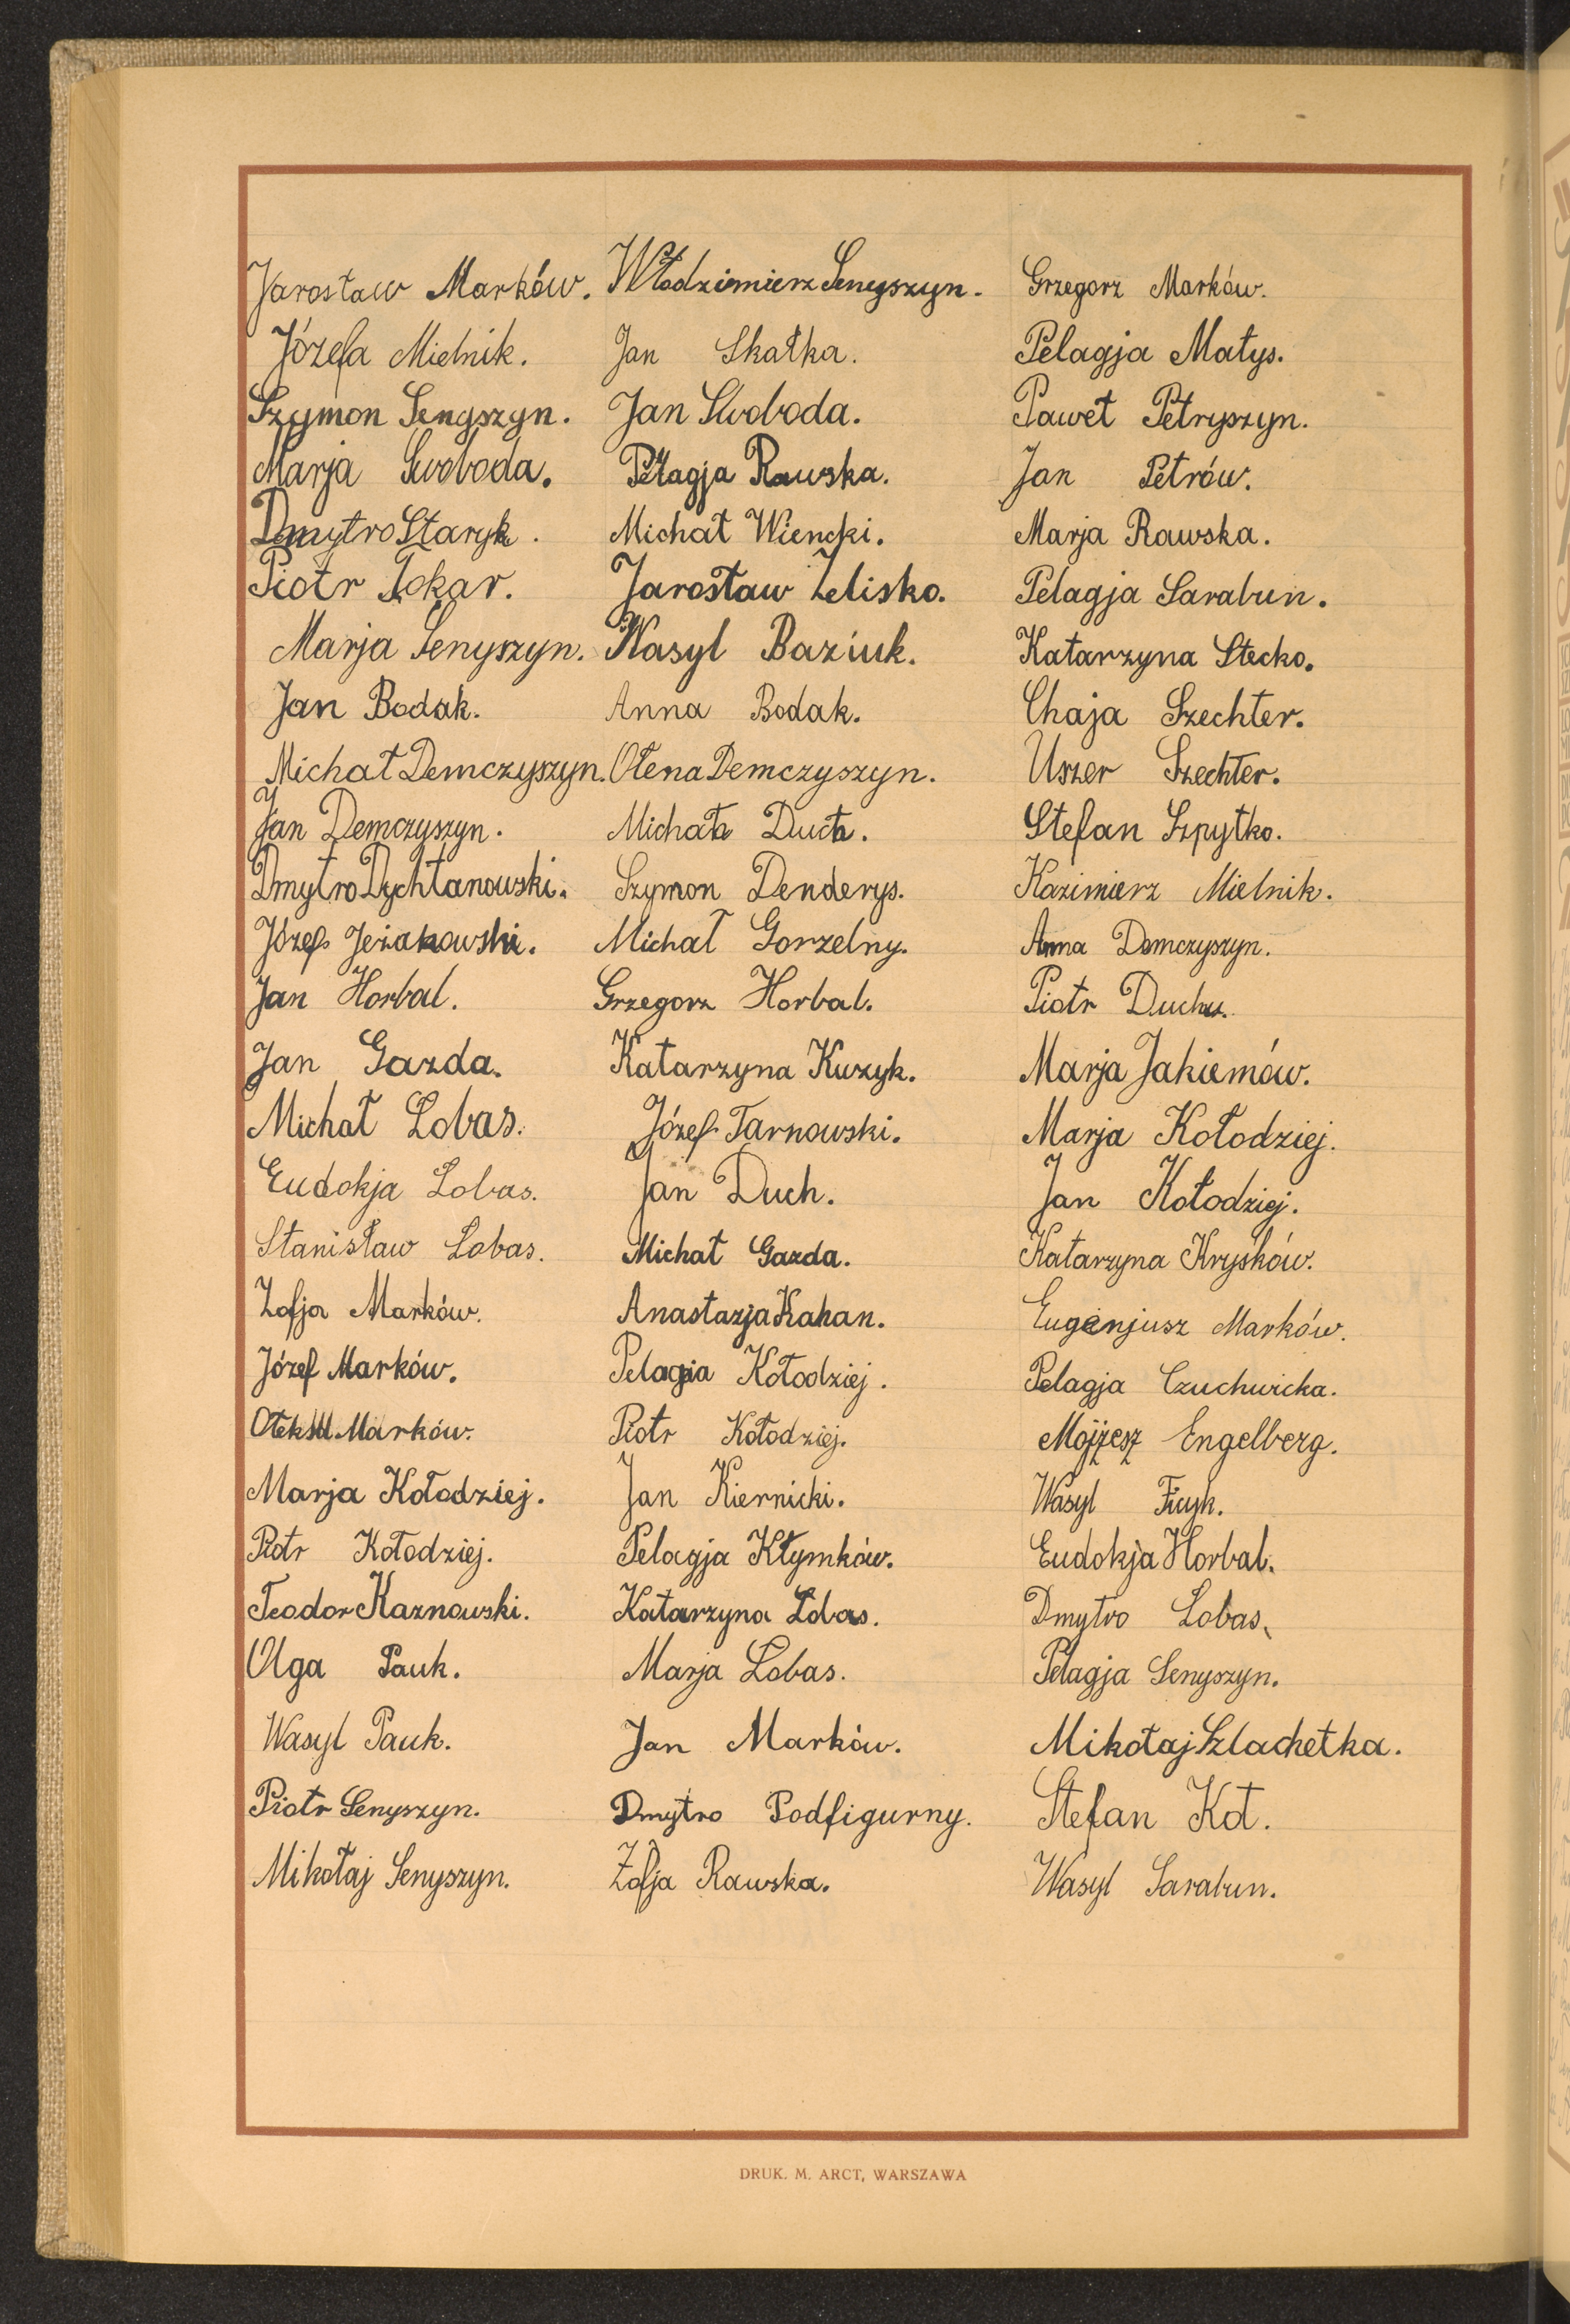 Jarosław Marków. Włodzimierz Senyszyn. Grzegorz Marków.
Józefa Mielnik. Jan Skałka. Pelagja Małys.
Szymon Senyszyn. Jan Swoboda. Paweł Petryszyn.
Marja Swoboda. Pełagja Rawska. Jan Petrów.
Dmytro Staryk. Michał Wiencki. Marja Rawska.
Piotr Tokar. Jarosław Zelisko. Pelagja Sarabun.
Marja Senyszyn. Wasyl Baziuk. Katarzyna Stecko.
Jan Bodak. Anna Bodak. Chaja Szechter.
Michał Demczyszyn. Ołena Demczyszyn. Uszer Szechter.
Jan Demczyszyn. Michał Duch. Stefan Szpytko.
Dmytro Dychtanowski. Szymon Denderys. Kazimierz Mielnik.
Józef Jeżakowski. Michał Gorzelny. Anna Demczyszyn.
Jan Horbal. Grzegorz Horbal. Piotr Duch.
Jan Gazda. Katarzyna Kuzyk. Marja Jakiemów.
Michał Lobas. Józef Tarnowski. Marja Kołodziej.
Eudokja Lobas. Jan Duch. Jan Kołodziej.
Stanisław Lobas. Michał Gazda. Katarzyna Kryśków.
Zofja Marków. Anastazja Kahan. Eugenjusz Marków.
Józef Marków. Pelagia Kołodziej. Pelagja Czuchwicka.
Marków. Piotr Kołodziej. Mojżesz Engelberg.
Marja Kołodziej. Jan Kiernicki. Wasyl Ficyk.
Piotr Kołodziej. Pelagja Kłymków. Eudokja Horbal.
Teodor Kaznowski. Katarzyna Lobas. Dmytro Lobas.
Olga Pauk. Marja Lobas. Pelagja Senyszyn.
Wasyl Pauk. Jan Marków. Mikołaj Szlachetka.
Piotr Senyszyn. Dmytro Podfigurny. Stefan Kot.
Mikołaj Senyszyn. Zofja Rawska. Wasyl Sarabun.
DRUK. M. ARCT, WARSZAWA